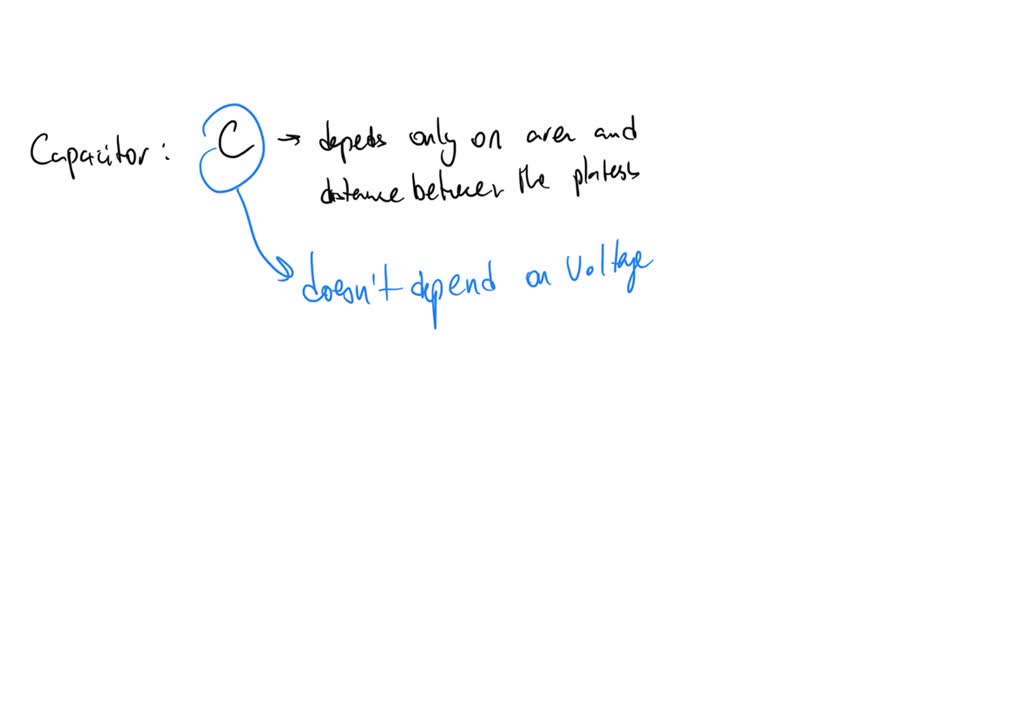 Capacitor: C → depeds only on area and
distance between the plates
doesn't depend on Voltage